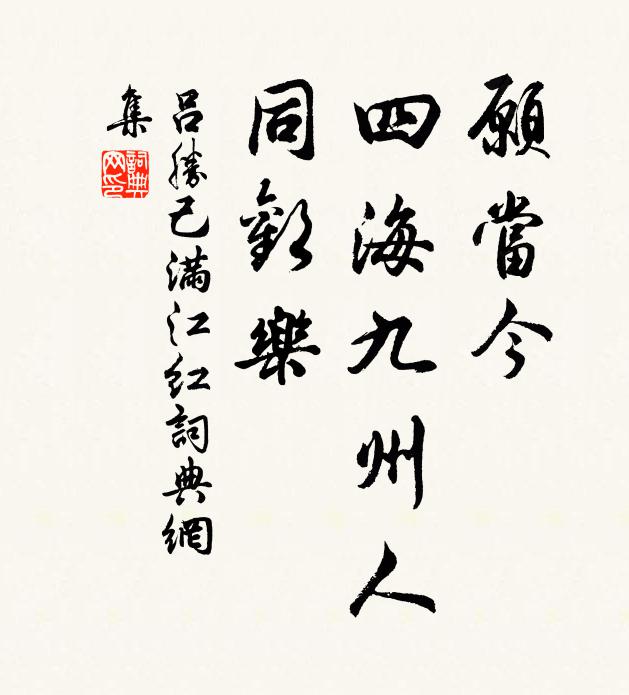 願當今
四海九州人
同歡樂
呂勝己滿江紅詞典網
集
詞典
网印